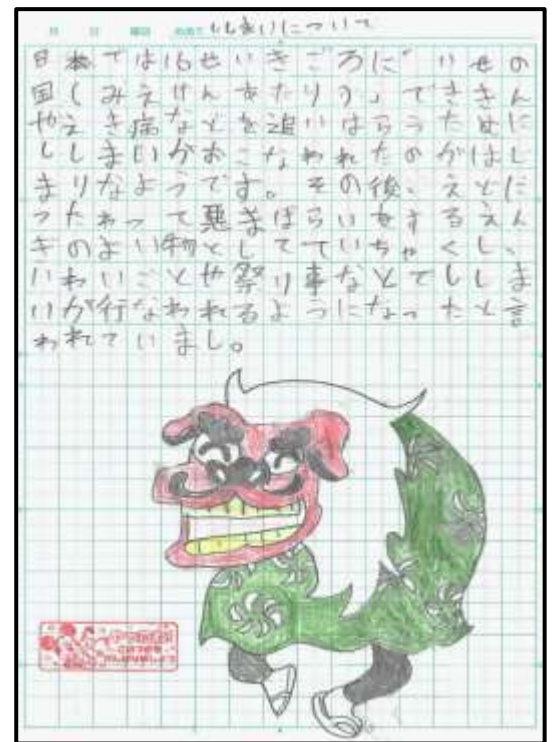 月 日 曜日 めあて ししまいについて
日本では16せいきごろに、いせの
国(みえけんあたり)、でききん
やえき病などを追いはらうために
ししまいがおこなわれたのがはじ
まりなようです。その後、えどに
つたわって悪まばらいをするえん
ぎのよい物としてていちゃくし、
いわいごとや祭り事などでししま
いが行なわれるようになったと言
われていまし。